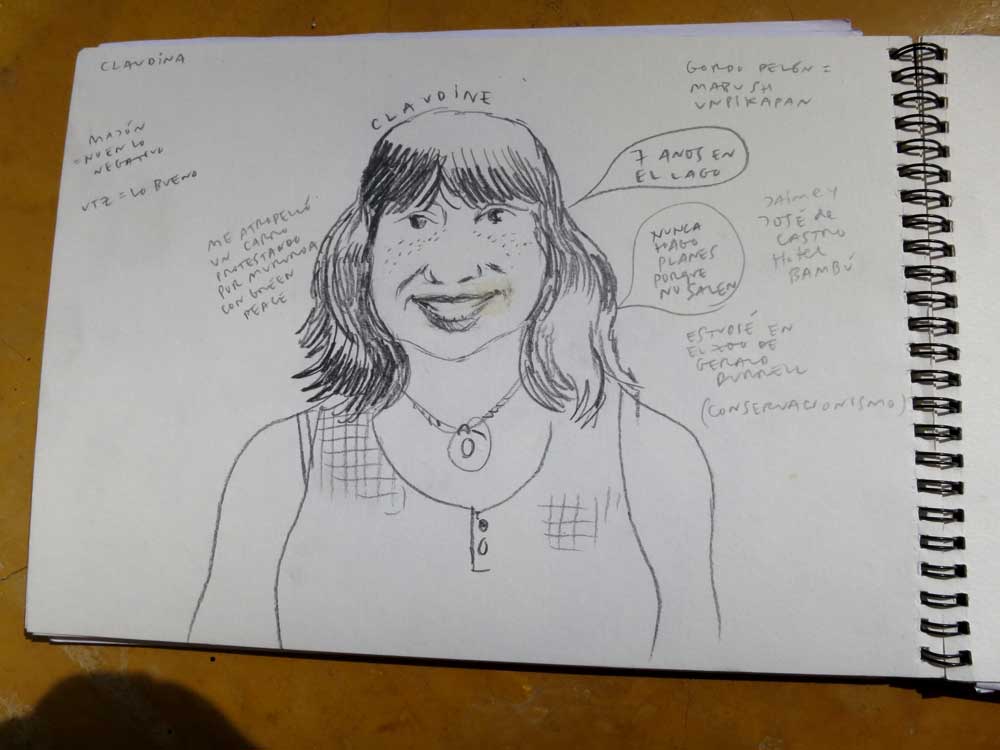 CLAUDINA
CLAUDINE
GORDO PELÓN =
MABUSH
UNPIKAPAN
MAJÓN
= NUEN LO
NEGATIVO
UTZ = LO BUENO
7 AÑOS EN
EL LAGO
ME ATROPELLÓ
UN CARRO
PROTESTANDO
POR MURUROA
CON GREEN
PEACE
NUNCA
HAGO
PLANES
PORQUE
NO SALEN
JAIME Y
JOSÉ de
CASTRO
HOTEL
BAMBÚ
ESTUDIÉ EN
EL ZOO DE
GERALD
DURRELL
(CONSERVACIONISMO)